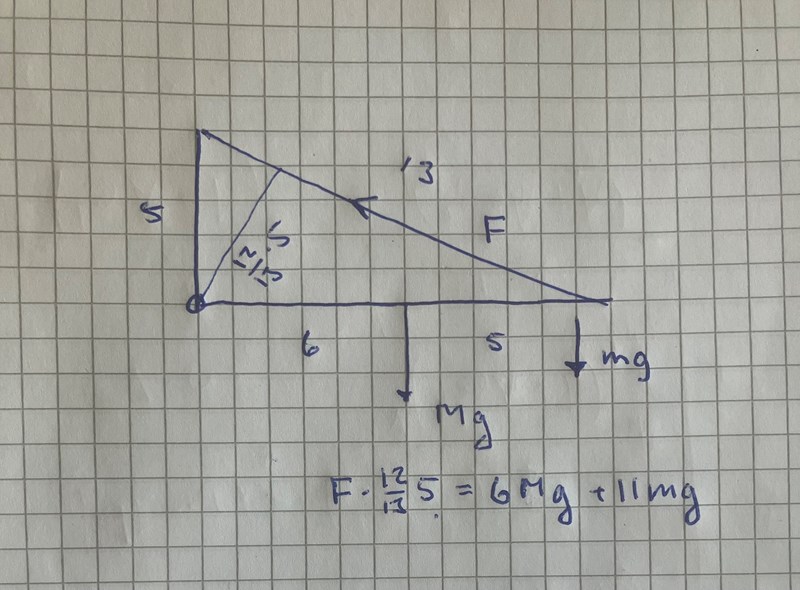 13
5
F
12/13 · 5
6
5
mg
Mg
F · 12/13 5 = 6 Mg + 11 mg